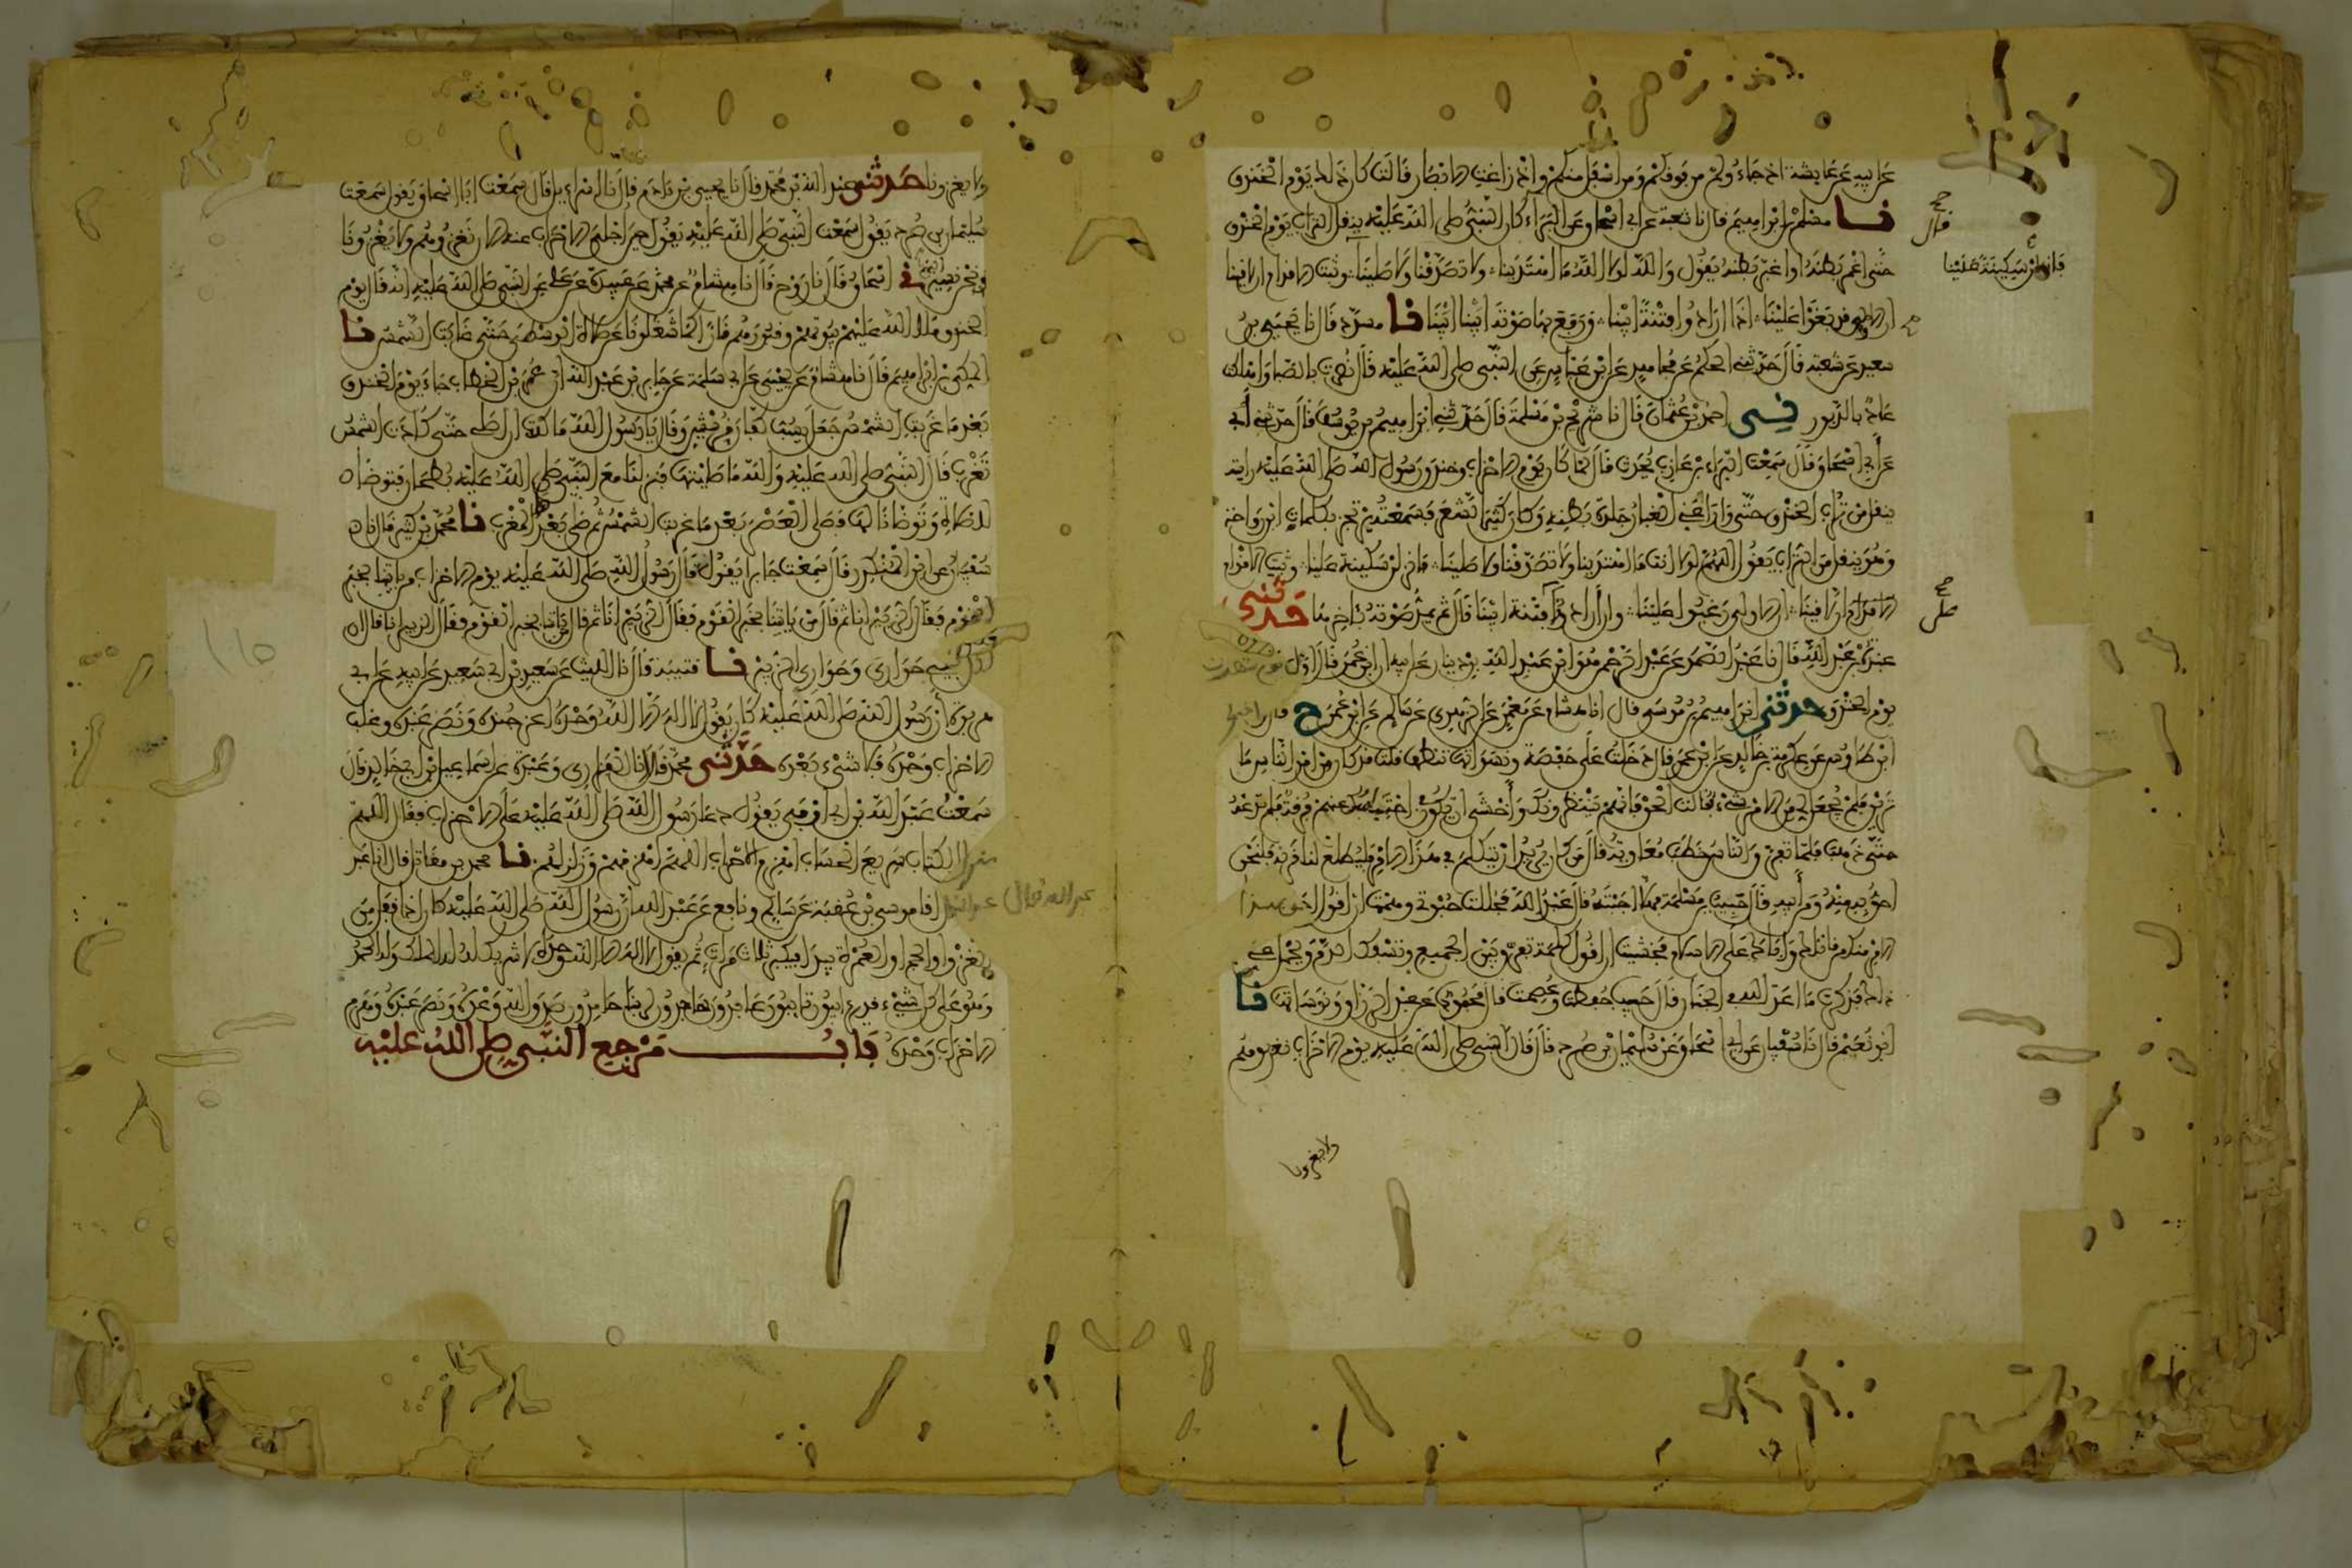 عن ابيه عن عايشة اذ جاءوكم من فوقكم ومن اسفل منكم واذ زاغت الابصار قالت كان ذلك يوم الخندق
نا مسلم بن ابراهيم قال نا شعبة عن ابي اسحاق عن البراء كان النبي صلى الله عليه ينقل التراب يوم الخندق
حتى اغمر بطنه او اغبر بطنه يقول والله لولا الله ما اهتدينا ولا تصدقنا ولا صلينا وثبت الاقدام ان لاقينا
ان الاولى قد بغوا علينا اذا ارادوا فتنة ابينا ورفع بها صوته ابينا ابينا نا مسدد قال نا يحيى بن
سعيد عن شعبة قال حدثني الحكم عن مجاهد عن ابن عباس عن النبي صلى الله عليه قال نصرت بالصبا واهلكت
عاد بالدبور ني احمد بن عثمان قال نا شريح بن مسلمة قال حدثني ابراهيم بن يوسف قال حدثني ابي
عن ابي اسحاق قال سمعت البراء بن عازب يحدث قال لما كان يوم الاحزاب وخندق رسول الله صلى الله عليه رايته
ينقل من تراب الخندق حتى وارى عني الغبار جلدة بطنه وكان كثير الشعر فسمعته يرتجز بكلمات ابن رواحة
وهو ينقل من التراب يقول اللهم لولا انت ما اهتدينا ولا تصدقنا ولا صلينا فانزلن سكينة علينا وثبت الاقدام
ان لاقينا ان الاولى رغبوا علينا وان ارادوا فتنة ابينا قال ثم يمد صوته باخرها حدثني
عبدة بن عبد الله قال نا عبد الصمد عن عبد الرحمن هو ابن عبد الله بن دينار عن ابيه ان ابن عمر قال اول يوم شهدت
يوم الخندق حدثني ابراهيم بن موسى قال انا هشام عن معمر عن الزهري عن سالم عن ابن عمر ح قال واخبرني
ابن طاوس عن عكرمة بن خالد عن ابن عمر قال دخلت على حفصة ونسواتها تنطف قلت قد كان من امر الناس ما
ترين فلم يجعل لي من الامر شيء فقالت الحق فانهم ينتظرونك واخشى ان يكون في احتباسك عنهم فرقة فلم تدعه
حتى ذهب فلما تفرق الناس خطب معاوية قال من كان يريد ان يتكلم في هذا الامر فليطلع لنا قرنه فلنحن
احق به منه ومن ابيه قال حبيب بن مسلمة فهلا اجبته قال عبد الله فحللت حبوتي وهممت ان اقول احق بهذا
الامر منك من قاتلك واباك على الاسلام فخشيت ان اقول كلمة تفرق بين الجميع وتسفك الدم ويحمل عني
غير ذلك فذكرت ما اعد الله في الجنان قال حبيب حفظت وعصمت قال محمود عن عبد الرزاق ونوساتها نا
ابو نعيم قال نا سفيان عن ابي اسحاق عن سليمان بن صرد قال قال النبي صلى الله عليه يوم الاحزاب نغزوهم
ولا يغزونا
قال
فانزلن سكينة علينا
ولا يغزونا حدثني عبد الله بن محمد قال نا يحيى بن ادم قال نا اسراءيل قال سمعت ابا اسحاق يقول سمعت
سليمان بن صرد يقول سمعت النبي صلى الله عليه يقول حين اجلى الاحزاب عنه الان نغزوهم ولا يغزونا
ونحن نسير اليهم ني اسحاق قال نا روح قال نا هشام عن محمد عن عبيدة عن علي عن النبي صلى الله عليه انه قال يوم
الخندق ملا الله عليهم بيوتهم وقبورهم نارا كما شغلونا عن صلاة الوسطى حتى غابت الشمس نا
المكي بن ابراهيم قال نا هشام عن يحيى عن ابي سلمة عن جابر بن عبد الله ان عمر بن الخطاب جاء يوم الخندق
بعد ما غربت الشمس جعل يسب كفار قريش وقال يا رسول الله ما كدت ان اصلي حتى كادت الشمس
تغرب قال النبي صلى الله عليه والله ما صليتها فنزلنا مع النبي صلى الله عليه بطحان فتوضا
للصلاة وتوضانا لها فصلى العصر بعد ما غربت الشمس ثم صلى بعدها المغرب نا محمد بن كثير قال انا
سفيان عن ابن المنكدر قال سمعت جابرا يقول قال رسول الله صلى الله عليه يوم الاحزاب من ياتينا بخبر
القوم فقال الزبير انا ثم قال من ياتينا بخبر القوم فقال الزبير انا ثم قال من ياتينا بخبر القوم فقال الزبير انا قال ان
لكل نبي حواري وحواري الزبير نا قتيبة قال نا الليث عن سعيد بن ابي سعيد عن ابيه عن ابي
هريرة ان رسول الله صلى الله عليه كان يقول لا اله الا الله وحده اعز جنده ونصر عبده وغلب
الاحزاب وحده فلا شيء بعده حدثني محمد قال انا الفزاري وعبدة عن اسماعيل بن ابي خالد قال
سمعت عبد الله بن ابي اوفى يقول دعا رسول الله صلى الله عليه على الاحزاب فقال اللهم
منزل الكتاب سريع الحساب اهزم الاحزاب اللهم اهزمهم وزلزلهم نا محمد بن مقاتل قال انا عبد
الله قال انا موسى بن عقبة عن سالم ونافع عن عبد الله ان رسول الله صلى الله عليه كان اذا قفل من
الغزو او الحج او العمرة يبدا فيكبر ثلاث مرات ثم يقول لا اله الا الله وحده لا شريك له له الملك وله الحمد
وهو على كل شيء قدير ءايبون تايبون عابدون ساجدون لربنا حامدون صدق الله وعده ونصر عبده وهزم
الاحزاب وحده باب مرجع النبي صلى الله عليه